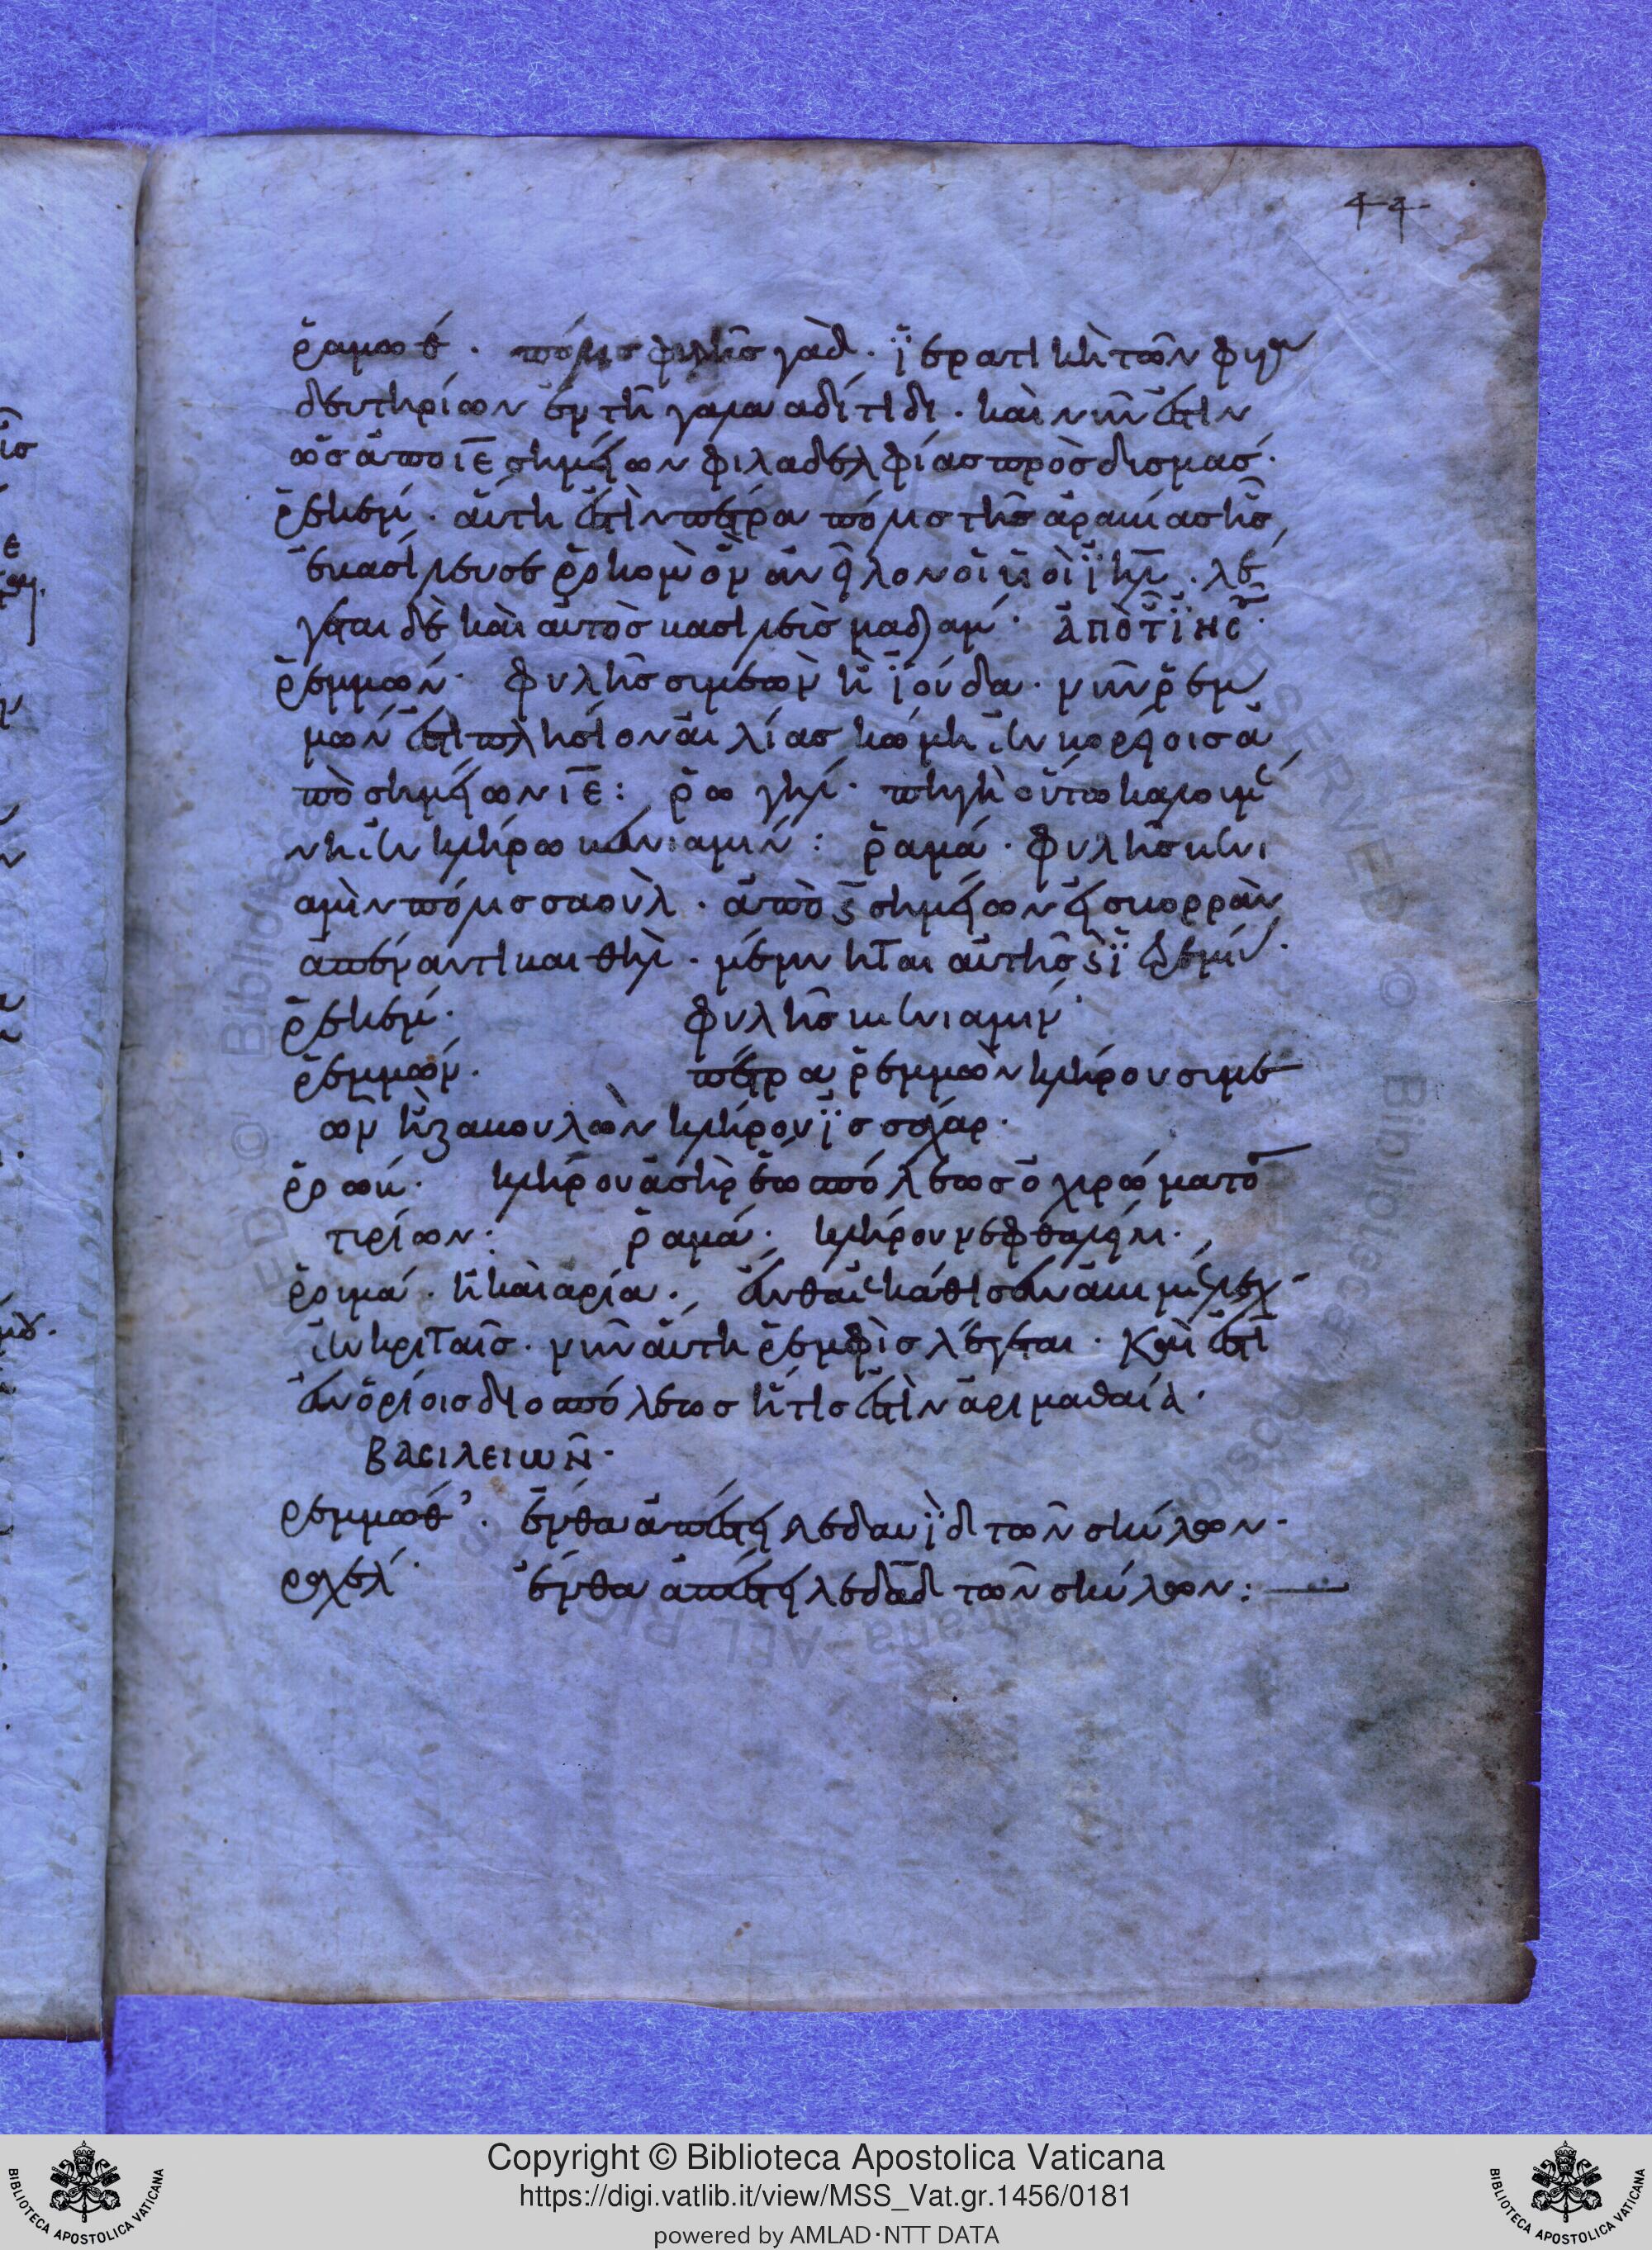 44
ῥαμώθ. πόλις φυλῆς γὰδ. ἱερατικὴ τῶν φυγα
δευτηρίων ἐν τῇ γαλααδίτιδι. καὶ νῦν ἐστὶν
ὡς ἀπὸ ιε σημείων φιλαδελφίας πρὸς δυσμάς.
ῥεκέμ. αὕτη ἐστὶν πέτρα πόλις τῆς ἀραβίας ἧς
ἐβασίλευσε ῥοκομ ὃν ἀνεῖλον οἱ υἱοὶ ἰηλ. λέ
γεται δὲ καὶ αὐτὸς βασιλεὺς μαδιάμ. ἀπὸ τ ἰησ
ῥεμμών. φυλῆς συμεὼν ἢ ἰούδα. νῦν ῥεμ
μών ἐστι πλησίον αἰλίας κώμη ἐν βορείοις ἀ
πὸ σημείων ιε: ῥωγήλ. πηγὴ οὕτω καλουμέ
νη ἐν κλήρω βενιαμίν: ῥαμά. φυλῆς βενι
αμὶν πόλις σαούλ. ἀπὸ ς σημείων εἰς βορρὰν
ἀπέναντι βαιθήλ. μέμνηται αὐτῆς κ ἱερεμί
ῥεκέμ. φυλῆς βενιαμίν
ῥεμμών. πέτρα ῥεμμὼν κλήρου συμε
ὼν ἢ ζαβουλὼν κλήρου ἰσσάχαρ.
ῥοώβ. κλήρου ἀσὴρ ἀπόλεως ὀχυρώματος
τυρίων: ῥαμά. κλήρου νεφθαλείμ.
ῥουμά. ἡ καὶ ἀρία. ἔνθα ἐκάθισεν ἀβιμέλεχ
ἐν κριταῖς. νῦν αὕτη ῥεμφὶς λέγεται. καὶ ἐστὶ
ἐν ὁρίοις διοπόλεως ἥτις ἐστὶν ἀριμαθαία.
βασιλειῶν.
ρεμμώθ. ἔνθα ἀποστέλλει δαυὶδ τῶν σκύλων.
ραχέλ. ἔνθα ἀποστέλλει δαδ τῶν σκύλων:
Copyright © Biblioteca Apostolica Vaticana
https://digi.vatlib.it/view/MSS_Vat.gr.1456/0181
powered by AMLAD·NTT DATA
BIBLIOTECA APOSTOLICA VATICANA
BIBLIOTECA APOSTOLICA VATICANA